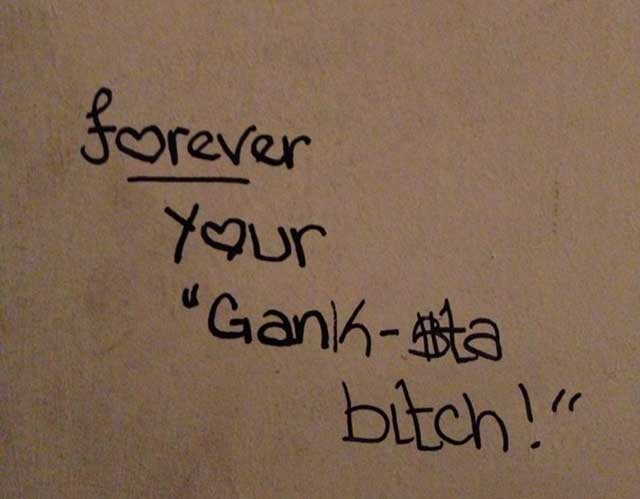 forever
your
"Gank-$ta
bitch!"